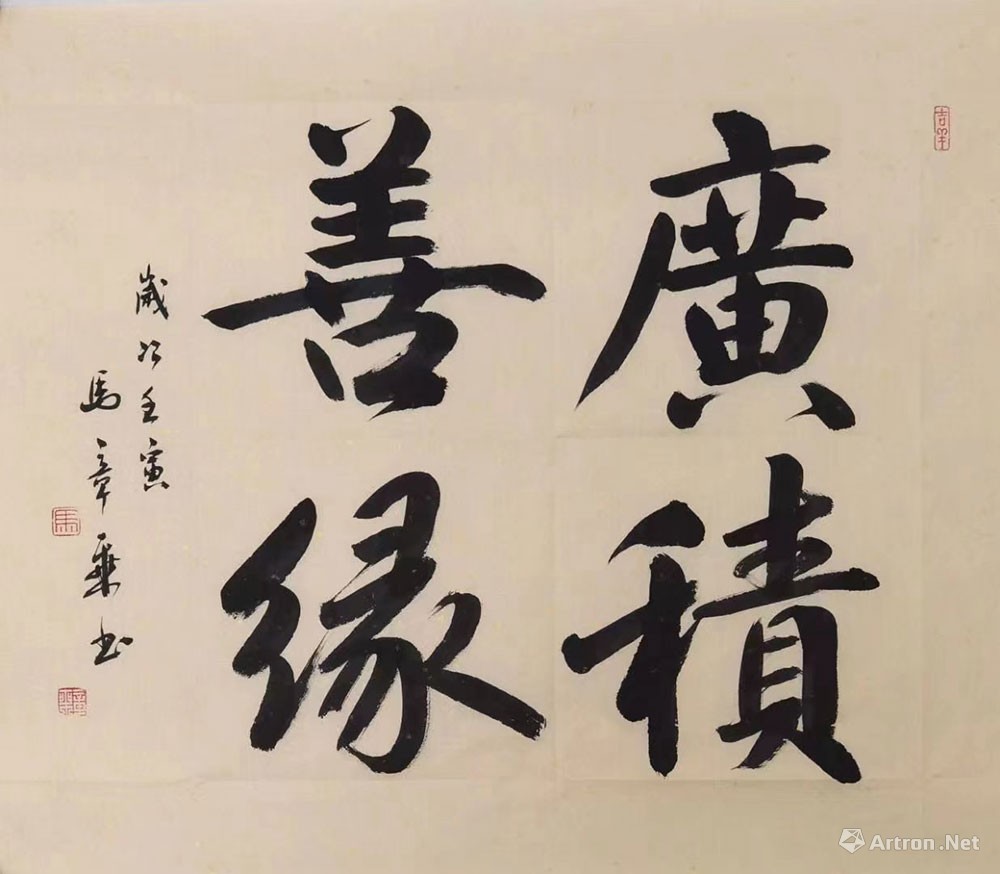 廣積
善緣
歲次壬寅
馬章乘書
馬
Artron.Net